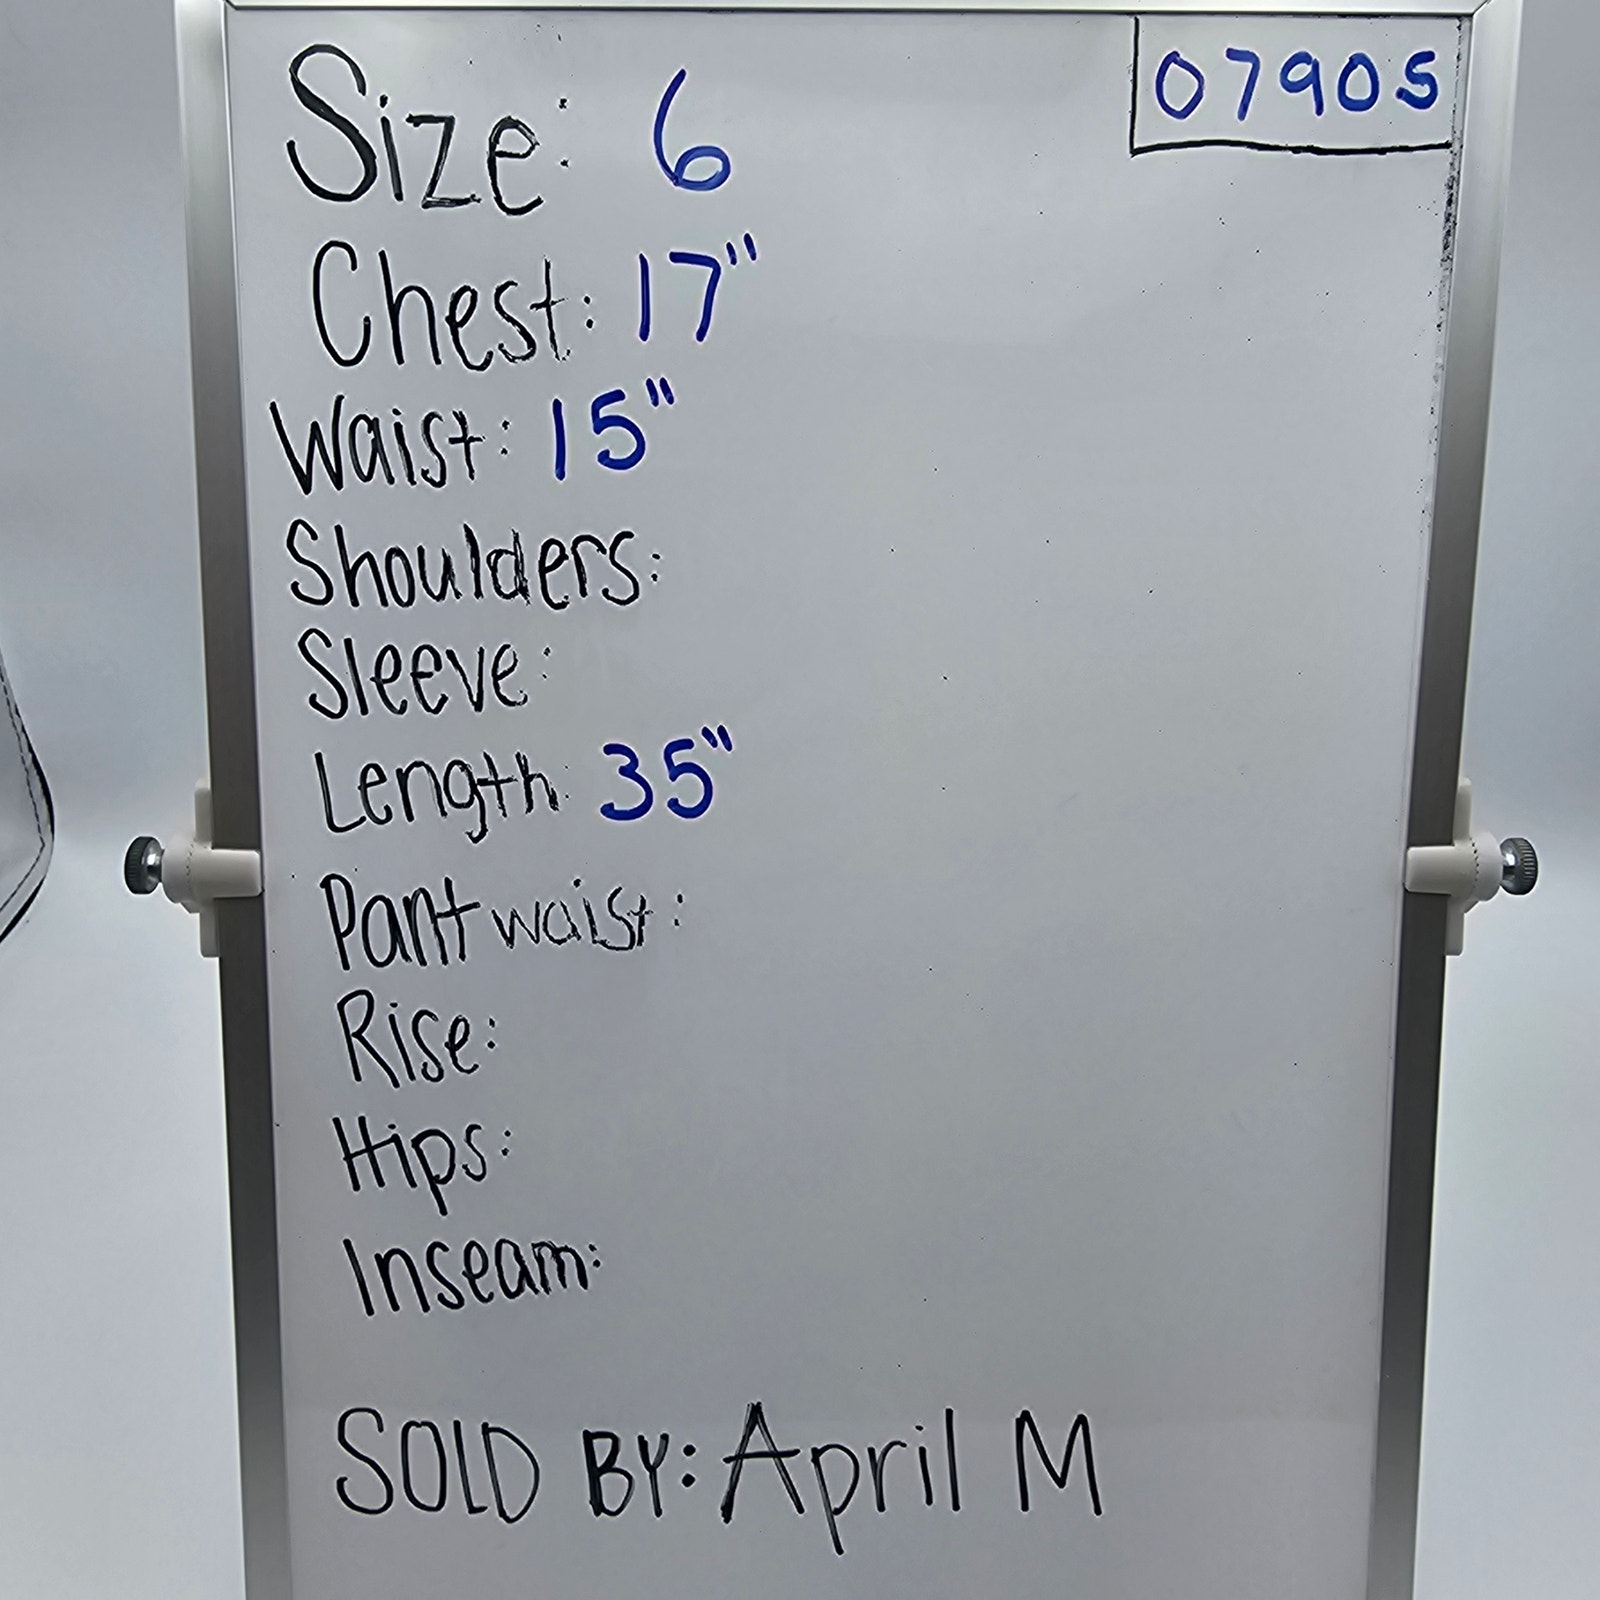 07905
Size: 6
Chest: 17"
Waist: 15"
Shoulders:
Sleeve:
Length: 35"
Pant waist:
Rise:
Hips:
Inseam:
SOLD BY: April M